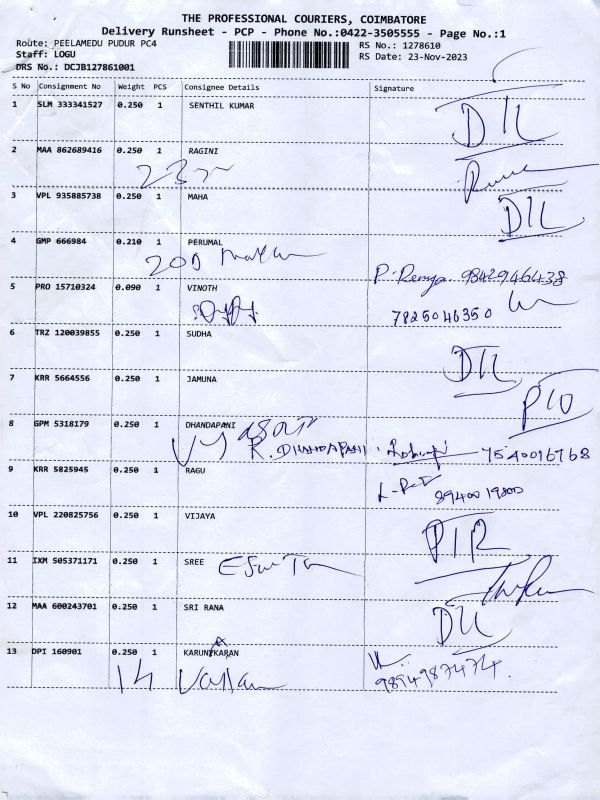 THE PROFESSIONAL COURIERS, COIMBATORE
Delivery Runsheet - PCP - Phone No.:0422-3505555 - Page No.:1
Route: PEELAMEDU PUDUR PC4
RS No.: 1278610
Staff: LOGU
RS Date: 23-Nov-2023
DRS No.: DCJB127861001
S No Consignment No Weight PCS Consignee Details Signature
1 SLM 333341527 0.250 1 SENTHIL KUMAR
2 MAA 862689416 0.250 1 RAGINI
3 VPL 935885738 0.250 1 MAHA
4 GMP 666984 0.210 1 PERUMAL
200
P. Remya 9842946438
5 PRO 15710324 0.090 1 VINOTH
7825046350
6 TRZ 120039855 0.250 1 SUDHA
7 KRR 5664556 0.250 1 JAMUNA
8 GPM 5318179 0.250 1 DHANDAPANI
R. DHANDAPANI 7540016768
9 KRR 5825945 0.250 1 RAGU
8940019800
10 VPL 220825756 0.250 1 VIJAYA
11 IXM 505371171 0.250 1 SREE
12 MAA 600243701 0.250 1 SRI RANA
13 DPI 160901 0.250 1 KARUNAKARAN
9894987474